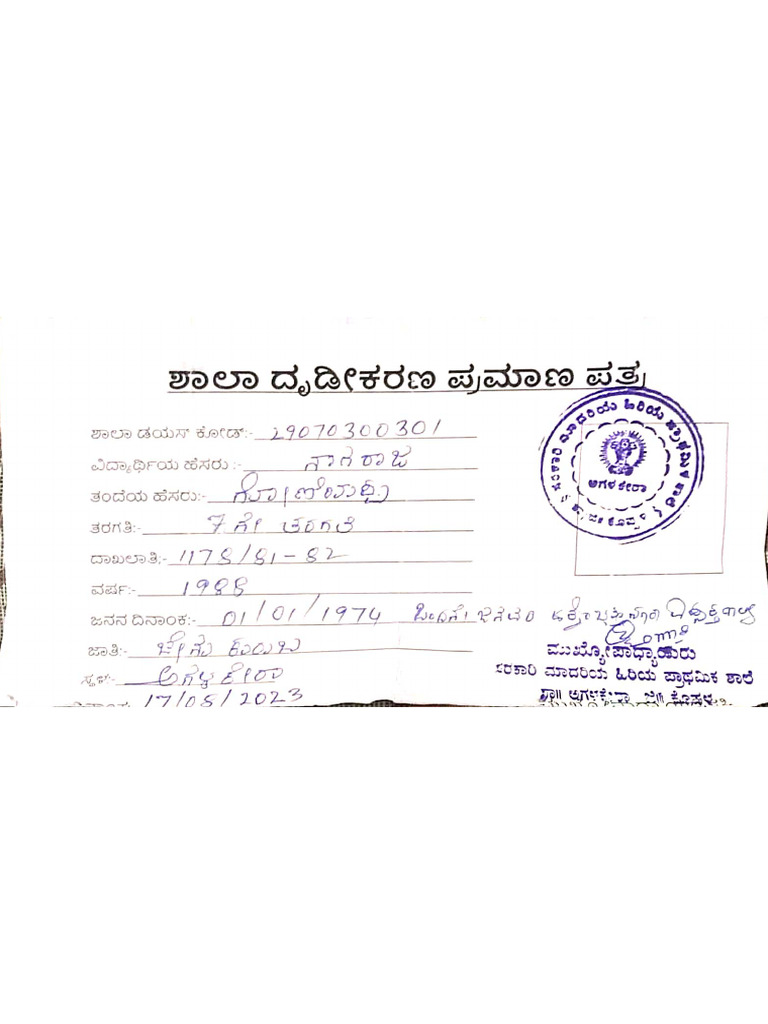 ಶಾಲಾ ದೃಡೀಕರಣ ಪ್ರಮಾಣ ಪತ್ರ
ಶಾಲಾ ಡಯಸ್ ಕೋಡ್:- 29070300301
ವಿದ್ಯಾರ್ಥಿಯ ಹೆಸರು :- ನಾಗರಾಜ
ತಂದೆಯ ಹೆಸರು:-
ತರಗತಿ:- 7 ನೇ ತರಗತಿ
ದಾಖಲಾತಿ:- 1178/81-82
ವರ್ಷ:- 1988
ಜನನ ದಿನಾಂಕ:- 01/01/1974
ಜಾತಿ:-
ಸ್ಥಳ:- ಅಗಳಕೇರಾ
17/05/2023
ಸರಕಾರಿ ಮಾದರಿಯ ಹಿರಿಯ ಪ್ರಾಥಮಿಕ ಶಾಲೆ
ಅಗಳಕೇರಾ
ಮುಖ್ಯೋಪಾಧ್ಯಾಯರು
ಸರಕಾರಿ ಮಾದರಿಯ ಹಿರಿಯ ಪ್ರಾಥಮಿಕ ಶಾಲೆ
ತಾ॥ ಅಗಳಕೇರಾ ಜಿ॥ ಕೊಪ್ಪಳ